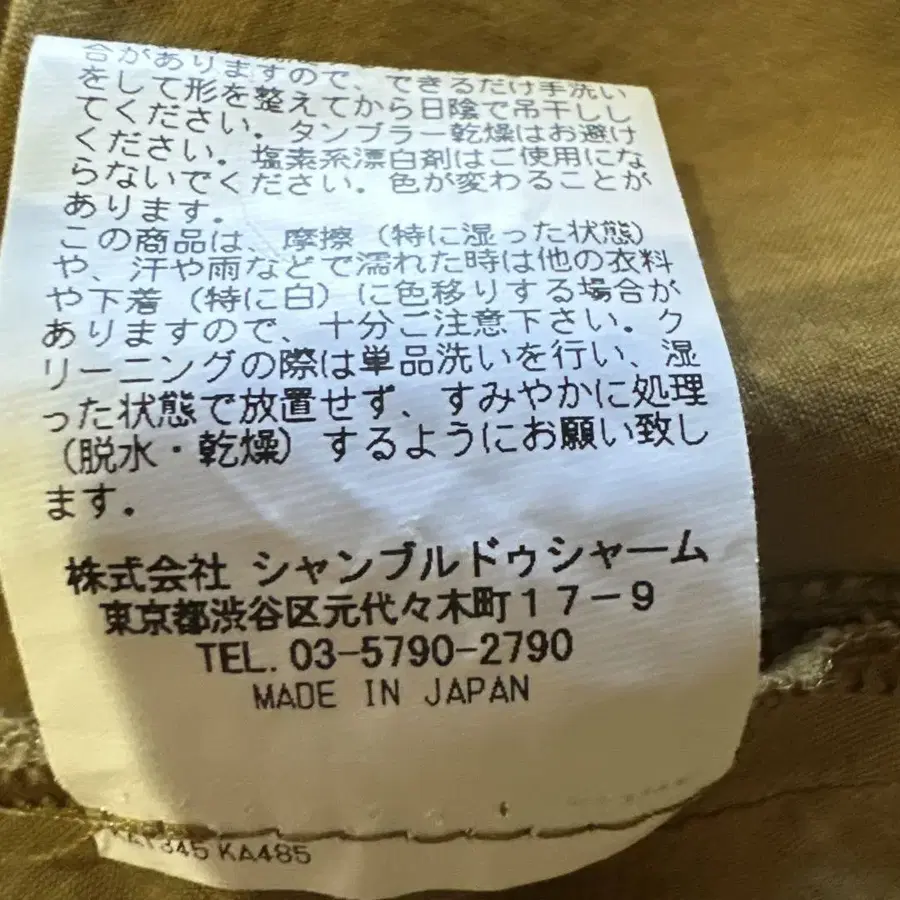 合がありますので、できるだけ手洗い
をして形を整えてから日陰で吊干しし
てください。タンブラー乾燥はお避け
ください。塩素系漂白剤はご使用にな
らないでください。色が変わることが
あります。
この商品は、摩擦（特に湿った状態）
や、汗や雨などで濡れた時は他の衣料
や下着（特に白）に色移りする場合が
ありますので、十分ご注意下さい。ク
リーニングの際は単品洗いを行い、湿
った状態で放置せず、すみやかに処理
（脱水・乾燥）するようにお願い致し
ます。
株式会社 シャンブルドゥシャーム
東京都渋谷区元代々木町１７－９
TEL. 03-5790-2790
MADE IN JAPAN
KA485